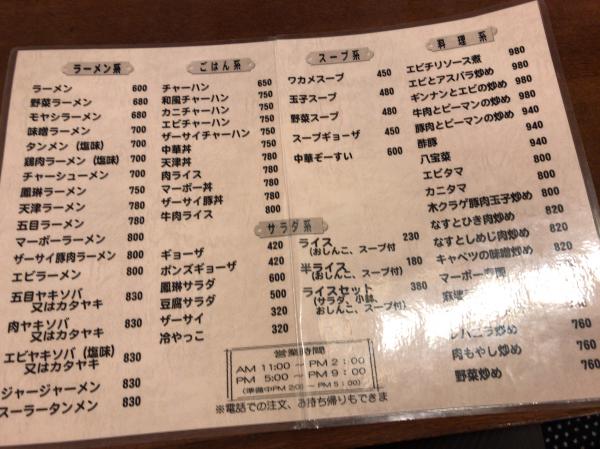 ラーメン系
ラーメン 600
野菜ラーメン 680
モヤシラーメン 680
味噌ラーメン 700
タンメン（塩味） 700
鶏肉ラーメン（塩味） 700
チャーシューメン 700
鳳琳ラーメン 750
天津ラーメン 780
五目ラーメン 780
マーボーラーメン 800
ザーサイ豚肉ラーメン 800
エビラーメン 800
五目ヤキソバ
又はカタヤキ 830
肉ヤキソバ
又はカタヤキ 830
エビヤキソバ（塩味）
又はカタヤキ 830
ジャージャーメン 830
スーラータンメン 830
ごはん系
チャーハン 650
和風チャーハン 750
カニチャーハン 750
エビチャーハン 750
ザーサイチャーハン 750
中華丼 780
天津丼 780
肉ライス 780
マーボー丼 780
ザーサイ豚丼 800
牛肉ライス 800
ギョーザ 420
ポンズギョーザ 420
鳳琳サラダ 600
豆腐サラダ 500
ザーサイ 320
冷やっこ 320
スープ系
ワカメスープ 450
玉子スープ 480
野菜スープ 480
スープギョーザ 450
中華ぞーすい 600
サラダ系
ライス 230
（おしんこ、スープ付
半ライス 180
（おしんこ、スープ付）
ライスセット 380
（サラダ、小鉢、
おしんこ、スープ付）
営業時間
AM 11:00 ～ PM 2:00
PM 5:00 ～ PM 9:00
（準備中PM 2:00 ～ PM 5:00）
※電話での注文、お持ち帰りもできま
料理系
エビチリソース煮 980
エビとアスパラ炒め 980
ギンナンとエビの炒め 980
牛肉とピーマンの炒め 980
豚肉とピーマンの炒め 940
酢豚 940
八宝菜 940
エビタマ 800
カニタマ 800
木クラゲ豚肉玉子炒め 800
なすとひき肉炒め 820
なすとしめじ肉炒め 820
キャベツの味噌炒め 820
マーボー
麻婆
レバニラ炒め 760
肉もやし炒め 760
野菜炒め 760